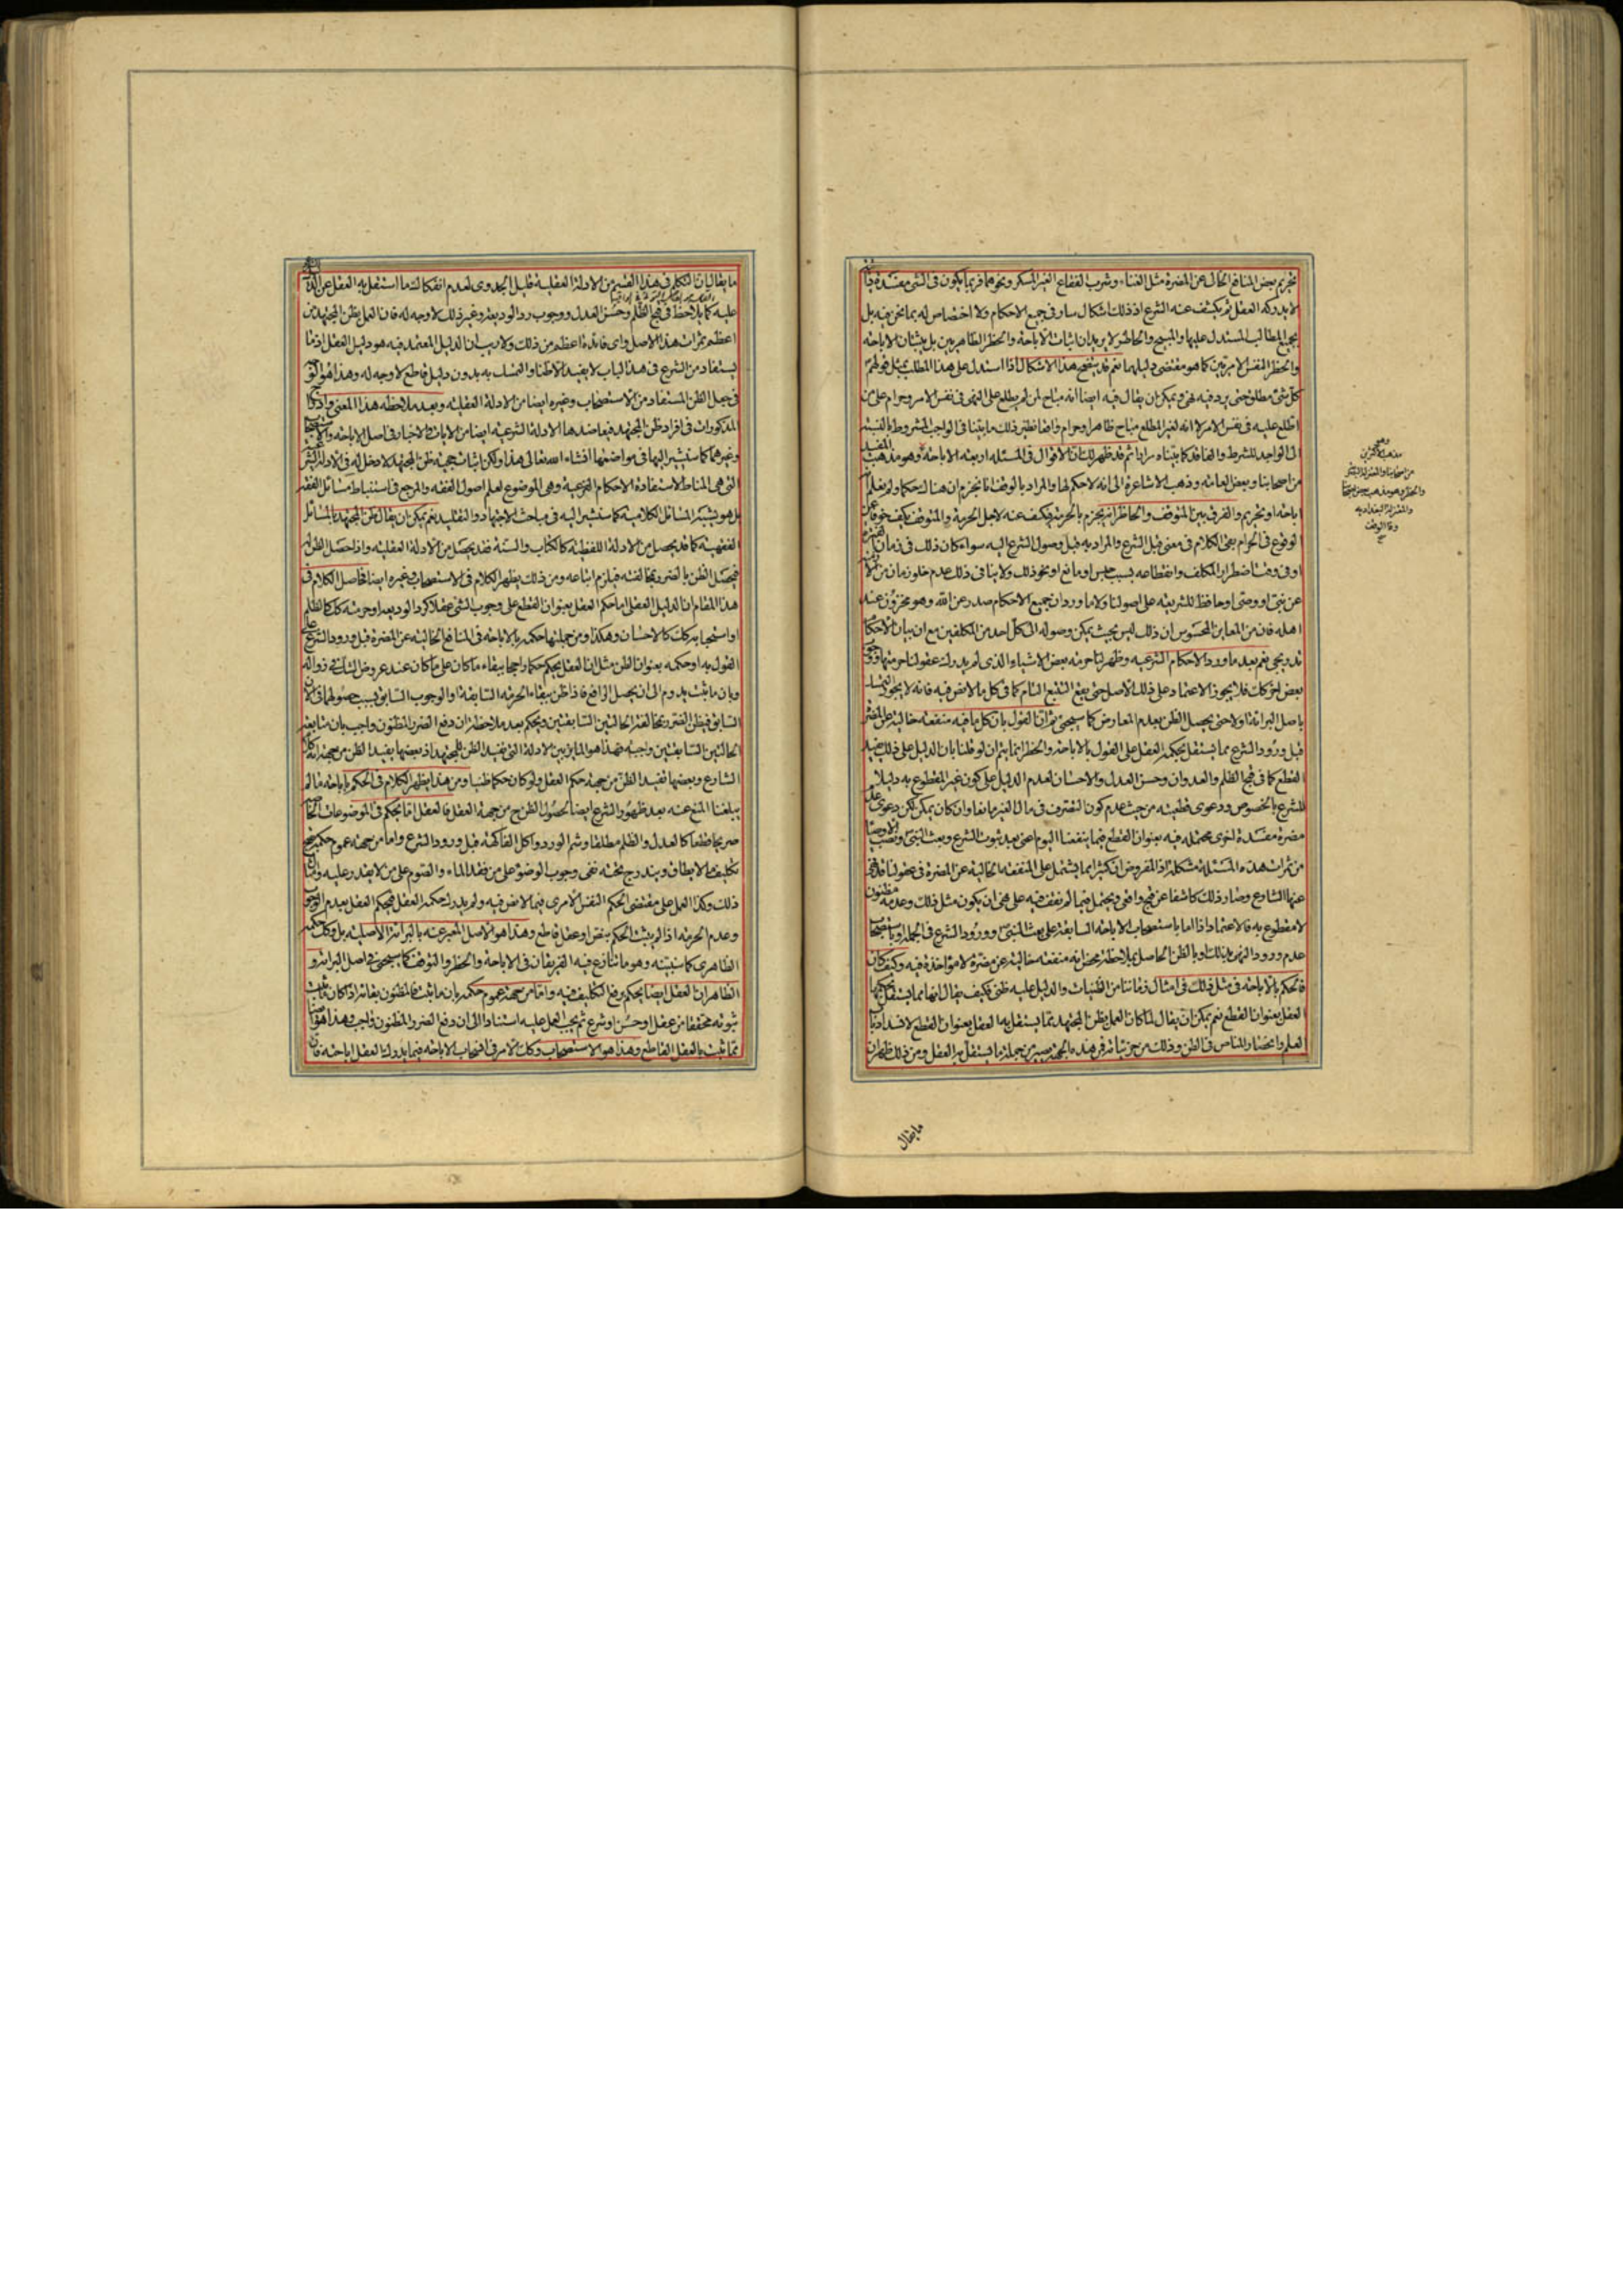 تحريم بعض المنافع الخالى عن المضرة مثل الغناء وشرب الفقاع الغير المسكر ونحوهما فربما يكون فى الشئ مفسدة
لا يدركه العقل ثم يكشف عنه الشرع اذ ذلك اشكال سار فى جميع الاحكام ولا اختصاص له بما نحن فيه بل
يجئ المطالب المستدل عليها والمبيح والحاظر لا يريدان اثبات الاباحة والحظر الظاهريين بل يثبتان الاباحة
والحظر النفس الامريين كما هو مقتضى دليلهما نعم قد يتضح هذا الاشكال اذا استدل على هذا المطلب بمثل قولهم
كل شئ مطلق حتى يرد فيه نهى ويمكن ان يقال فيه ايضا انه مباح لمن لم يطلع على النهى فى نفس الامر وحرام على من
اطلع عليه فى نفس الامر لا انه لغير المطلع مباح ظاهرا وحرام واقعا نظير ذلك ما بيّنا فى الواجب المشروط بالنسبة
الى الواجد للشرط والفاقد كما بيّناه مرارا ثم قد ظهر لك ان الاقوال فى المسئلة اربعة الاباحة وهو مذهب
من اصحابنا وبعض العامة وذهب الاشاعرة الى انه لا حكم لها والمراد بالوقف انا نجزم ان هنالك حكما ولم نعلم
اباحة او تحريم والفرق بين المتوقف والحاظر انه يجزم بالحرمة فيكف عنه لاجل الحرمة والمتوقف يكف خوفا عن
الوقوع فى الحرام بقى الكلام فى معنى قبل الشرع والمراد به قبل وصول الشرع اليه سواء كان ذلك فى زمان الفترة
او فى وقت اضطرار المكلف وانقطاعه بسبب حبس او مانع او نحو ذلك ولا ينافى ذلك عدم خلو زمان من
عن نبى او وصى او حافظ للشريعة على اصولنا ولا ما ورد ان جميع الاحكام صدر عن الله وهو مخزون عند
اهله فان من المعاين المحسوس ان ذلك ليس بحيث يمكن وصوله الى كل احد من المكلفين مع ان بيان الاحكام
تدريجى نعم بعد ما ورد الاحكام الشرعية وظهر لنا حرمة بعض الاشياء الذى لم يدرك عقولنا حرمتها
بعض اخر كك فلا يجوز الاعتماد على ذلك الاصل حتى يقع التتبع التام كما فى كل ما لا نص فيه فانه لا يجوز
باصل البرائة اولا حتى يحصل الظن بعدم المعارض كما سيجئ ثم ان القول بان كل ما فيه منفعة خالية عن المضرة
قبل ورود الشرع مما يستقل بحكمه العقل على القول بالاباحة والحظر انما يتم ان لو قلنا بان الدليل على ذلك يفيد
القطع كما فى قبح الظلم والعدوان وحسن العدل والاحسان لعدم الدليل على كون غير المقطوع به دليلا
للشرع بالخصوص ودعوى قطعيته من حيث عدم كون التصرف فى مال الغير مانعا وان كان يمكن لكن دعوى عدم
مضرة مفسدة اخرى محتملة فيه بعنوان القطع فيما ينفعنا اليوم اعنى بعد ثبوت الشرع وبعث النبى ونصب الاوصياء
من ثمرات هذه المسئلة مشكلة اذ المفروض ان كثيرا مما يشتمل على المنفعة الخالية عن المضرة فى عقولنا قد نهى
عنها الشارع وصار ذلك كاشفا عن قبح واقعى ويحتمل فيما لم نقف فيه على نهى ان يكون مثل ذلك وعدمه مظنون
لا مقطوع به فالاعتماد اذا اما باستصحاب الاباحة السابقة على بعث النبى وورود الشرع فى الجملة وباستصحاب
عدم ورود النهى بذلك او بالظن الحاصل بملاحظة محض انه منفعة خالية عن مضرة لا مؤاخذة فيه وكيف كان
فالحكم بالاباحة فى مثل ذلك فى امثال زماننا من الظنيات والدليل عليه ظنى فكيف يقال انها مما يستقل بحكمها
العقل بعنوان القطع نعم يمكن ان يقال لما كان العمل بظن المجتهد مما يستقل به العقل بعنوان القطع لانسداد باب
العلم وانحصار المناص فى الظن وذلك من جزئياته فمن هذه الجهة يصير من جملة ما يستقل به العقل ومن ذلك ظهر ان
مذهب الاكثرين
من اصحابنا والمعتزلة البصرية
والحظر وهو مذهب بعض اصحابنا
والمعتزلة البغدادية
وقا الوقف
ما يقال
ما يقال بان التكلم فى هذا القسم من الادلة العقلية قليل الجدوى لعدم انفكاك ما استقل به العقل عن
عليه كما يلاحظ فى قبح الظلم وحسن العدل ووجوب رد الوديعة وغير ذلك لا وجه له فان العمل بظن المجتهد من
اعظم ثمرات هذا الاصل واى فائدة اعظم من ذلك ولا ريب ان الدليل المعتمد فيه هو دليل العقل اذ ما
يستفاد من الشرع فى هذا الباب لا يفيد الا ظنا والتمسك به بدون دليل قاطع لا وجه له وهذا هو
فى جعل الظن المستفاد من الاستصحاب وغيره ايضا من الادلة العقلية وبعد ملاحظة هذا المعنى وادراك
المذكورات فى افراد ظن المجتهد فيعاضدها الادلة الشرعية ايضا من الايات والاخبار فى اصل الاباحة والاستصحاب
وغيرهما كما سنشير اليها فى مواضعها انشاء الله تعالى هذا ولكن اثبات حجية ظن المجتهد لا دخل له فى الادلة
التى هى المناط لاستفادة الاحكام الفرعية وهى الموضوع لعلم اصول الفقه والمرجع فى استنباط مسائل الفقه
بل هو يشبه المسائل الكلامية كما سنشير اليه فى مباحث الاجتهاد والتقليد نعم يمكن ان يقال ظن المجتهد بالمسائل
الفقهية كما قد يحصل من الادلة اللفظية كالكتاب والسنة فقد يحصل من الادلة العقلية واذا حصل الظن
فيحصل الظن بالضرر بمخالفته فيلزم اتباعه ومن ذلك يظهر الكلام فى الاستصحاب وغيره ايضا فاصل الكلام فى
هذا المقام ان الدليل العقلى اما حكم العقل بعنوان القطع على وجوب الشئ عقلا كرد الوديعة او حرمته كك كالظلم
او استحبابه كك كالاحسان وهكذا ومن جملتها حكمه بالاباحة فى المنافع الخالية عن المضرة قبل ورود الشرع على
القول به او حكمه بعنوان الظن مثل ان العقل يحكم حكما راجحا ببقاء ما كان على ما كان عند عروض الشك فى زواله
وبان ما ثبت يدوم الى ان يحصل الرافع فاذا ظن ببقاء الحرمة السابقة او الوجوب السابق بسبب حصولهما فى الان
السابق فيظن الضرر بمخالفة الحالتين السابقتين ويحكم بعد ملاحظة ان دفع الضرر المظنون واجب بان متابعة
الحالتين السابقتين واجبة فهذا هو المايز بين الادلة التى تفيد الظن للمجتهد اذ بعضها يفيد الظن من جهة انه كلام
الشارع وبعضها تفيد الظن من جهة حكم العقل ولو كان حكما ظنيا ومن هذا يظهر الكلام فى الحكم باباحة ما لم
يبلغنا المنع عنه بعد ظهور الشرع ايضا لحصول الظن ح من جهة العقل فالعقل اما يحكم فى الموضوعات الخاصة
صريحا قطعا كالعدل والظلم مطلقا وشم الورد واكل الفاكهة قبل ورود الشرع واما من جهة عموم حكمه بقبح
تكليف ما لا يطاق ويندرج تحته نفى وجوب الوضوء على من فقد الماء والصوم على من لا يقدر عليه وامثال
ذلك وكذا العمل على مقتضى الحكم النفس الامرى فيما لا نص فيه ولم يدرك حكمه العقل فيحكم العقل بعدم الوجوب
وعدم الحرمة اذا لم يثبت الحكم بنص او عقل قاطع وهذا هو الاصل المعبر عنه بالبرائة الاصلية بل وكك حكمه
الظاهرى كما سنبينه وهو ما تنازع فيه الفريقان فى الاباحة والحظر والتوقف كما سيجئ فى اصل البرائة و
الظاهر ان العقل ايضا يحكم برفع التكليف فيه واما من جهة عموم حكمه بان ما ثبت فالمظنون بقائه اذا كان ما ثبت
ثبوته محققا من عقل او حس او شرع ثم يجب العمل عليه استنادا الى ان دفع الضرر المظنون واجب وهذا هو ايضا
مما ثبت بالعقل القاطع وهذا هو الاستصحاب وكك الامر فى استصحاب الاباحة فيما يدرك العقل اباحته فان